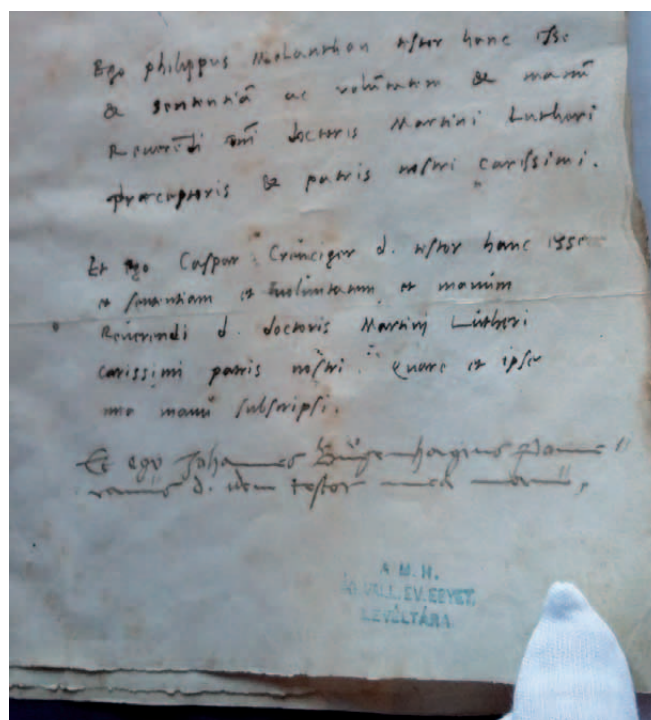 Ego philippus Melanthon testor hanc esse
& sententiā ac volūtatem & manū
Reuerēdi dni doctoris Martini Lutheri
præceptoris & patris nostri carissimi.
Et ego Caspar Crūciger d. testor hanc esse
et sententiam et voluntatem et manum
Reuerendi d. doctoris Martinj Lutheri
carissimi patris nostri. Quare et ipse
mea manu subscripsi.
Et ego Johannes Bugenhagius
d. idem testor mea manu,
A M. H.
VALL. EV. EGYET.
LEVÉLTÁRA